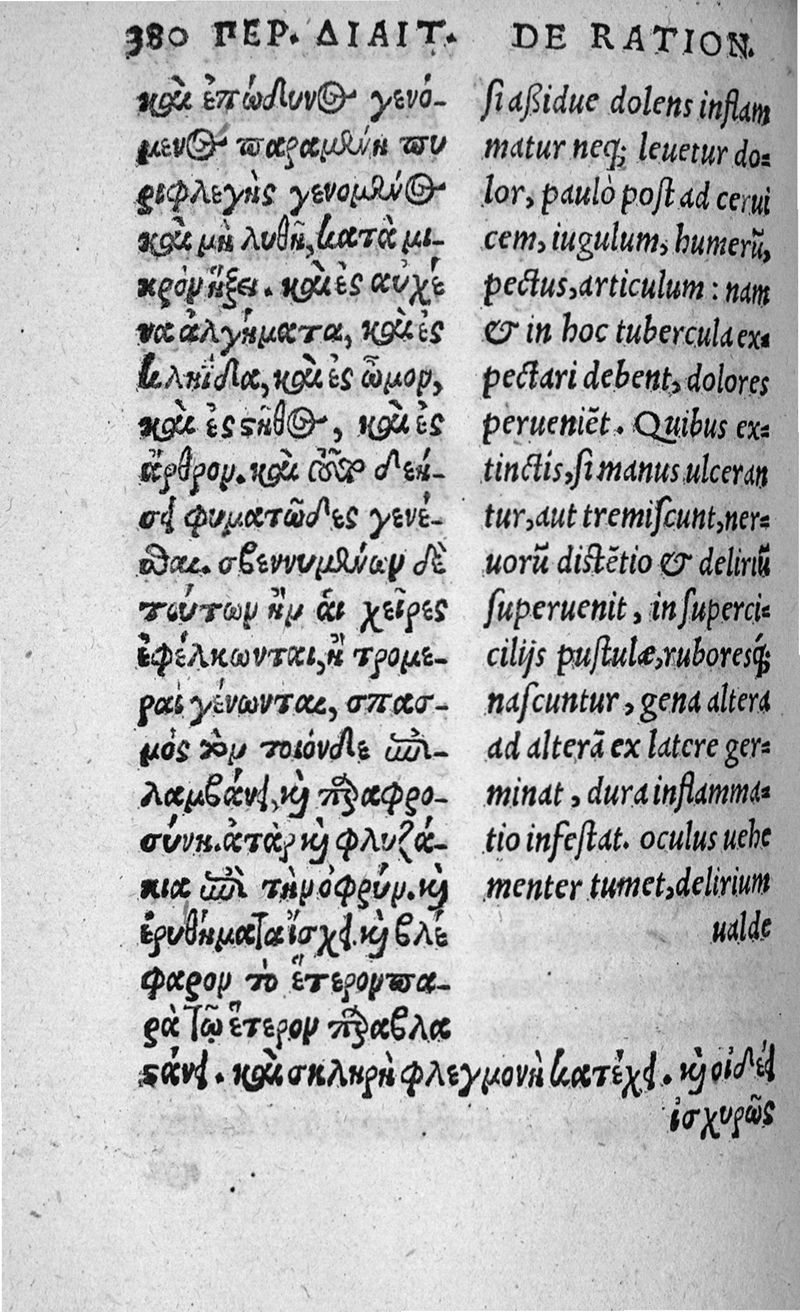 380 ΠΕΡ. ΔΙΑΙΤ.
καὶ ἐπώδυνος γενό-
μενος παραμένῃ πυ
ριφλεγὴς γενομένος
καὶ μὴ λυθῇ, κατὰ μι-
κρὸν ἥξει. καὶ ἐς αὐχέ
να ἀλγήματα, καὶ ἐς
κληΐδα, καὶ ἐς ὦμον,
καὶ ἐς στῆθος, καὶ ἐς
ἄρθρον. καὶ οὖν δεή-
σει φυματῶδες γενέ-
σθαι. σβεννυμένων δὲ
τούτων ἢν αἱ χεῖρες
ἐφέλκωνται, ἢ τρομε-
ραὶ γένωνται, σπασ-
μὸς τὸν τοιόνδε ἐπι-
λαμβάνει, καὶ παραφρο-
σύνη. ἀτὰρ καὶ φλυζά-
κια ἐπὶ τὴν ὀφρὺν. καὶ
ἐρυθήματα ἴσχει. καὶ βλέ
φαρον τὸ ἕτερον πα-
ρὰ τῷ ἕτερον παραβλα
στάνει. καὶ σκληρὴ φλεγμονὴ κατέχει. καὶ οἰδέει
ἰσχυρῶς
DE RATION.
si aßidue dolens inflam
matur neq; leuetur do-
lor, paulò post ad cerui
cem, iugulum, humerū,
pectus, articulum : nam
& in hoc tubercula ex-
pectari debent, dolores
perueniēt. Quibus ex-
tinctis, si manus ulceran
tur, aut tremiscunt, ner-
uorū distētio & deliriū
superuenit, in superci-
cilijs pustulæ, ruboresq́;
nascuntur, gena altera
ad alterā ex latere ger-
minat, dura inflamma-
tio infestat. oculus uehe
menter tumet, delirium
ualde